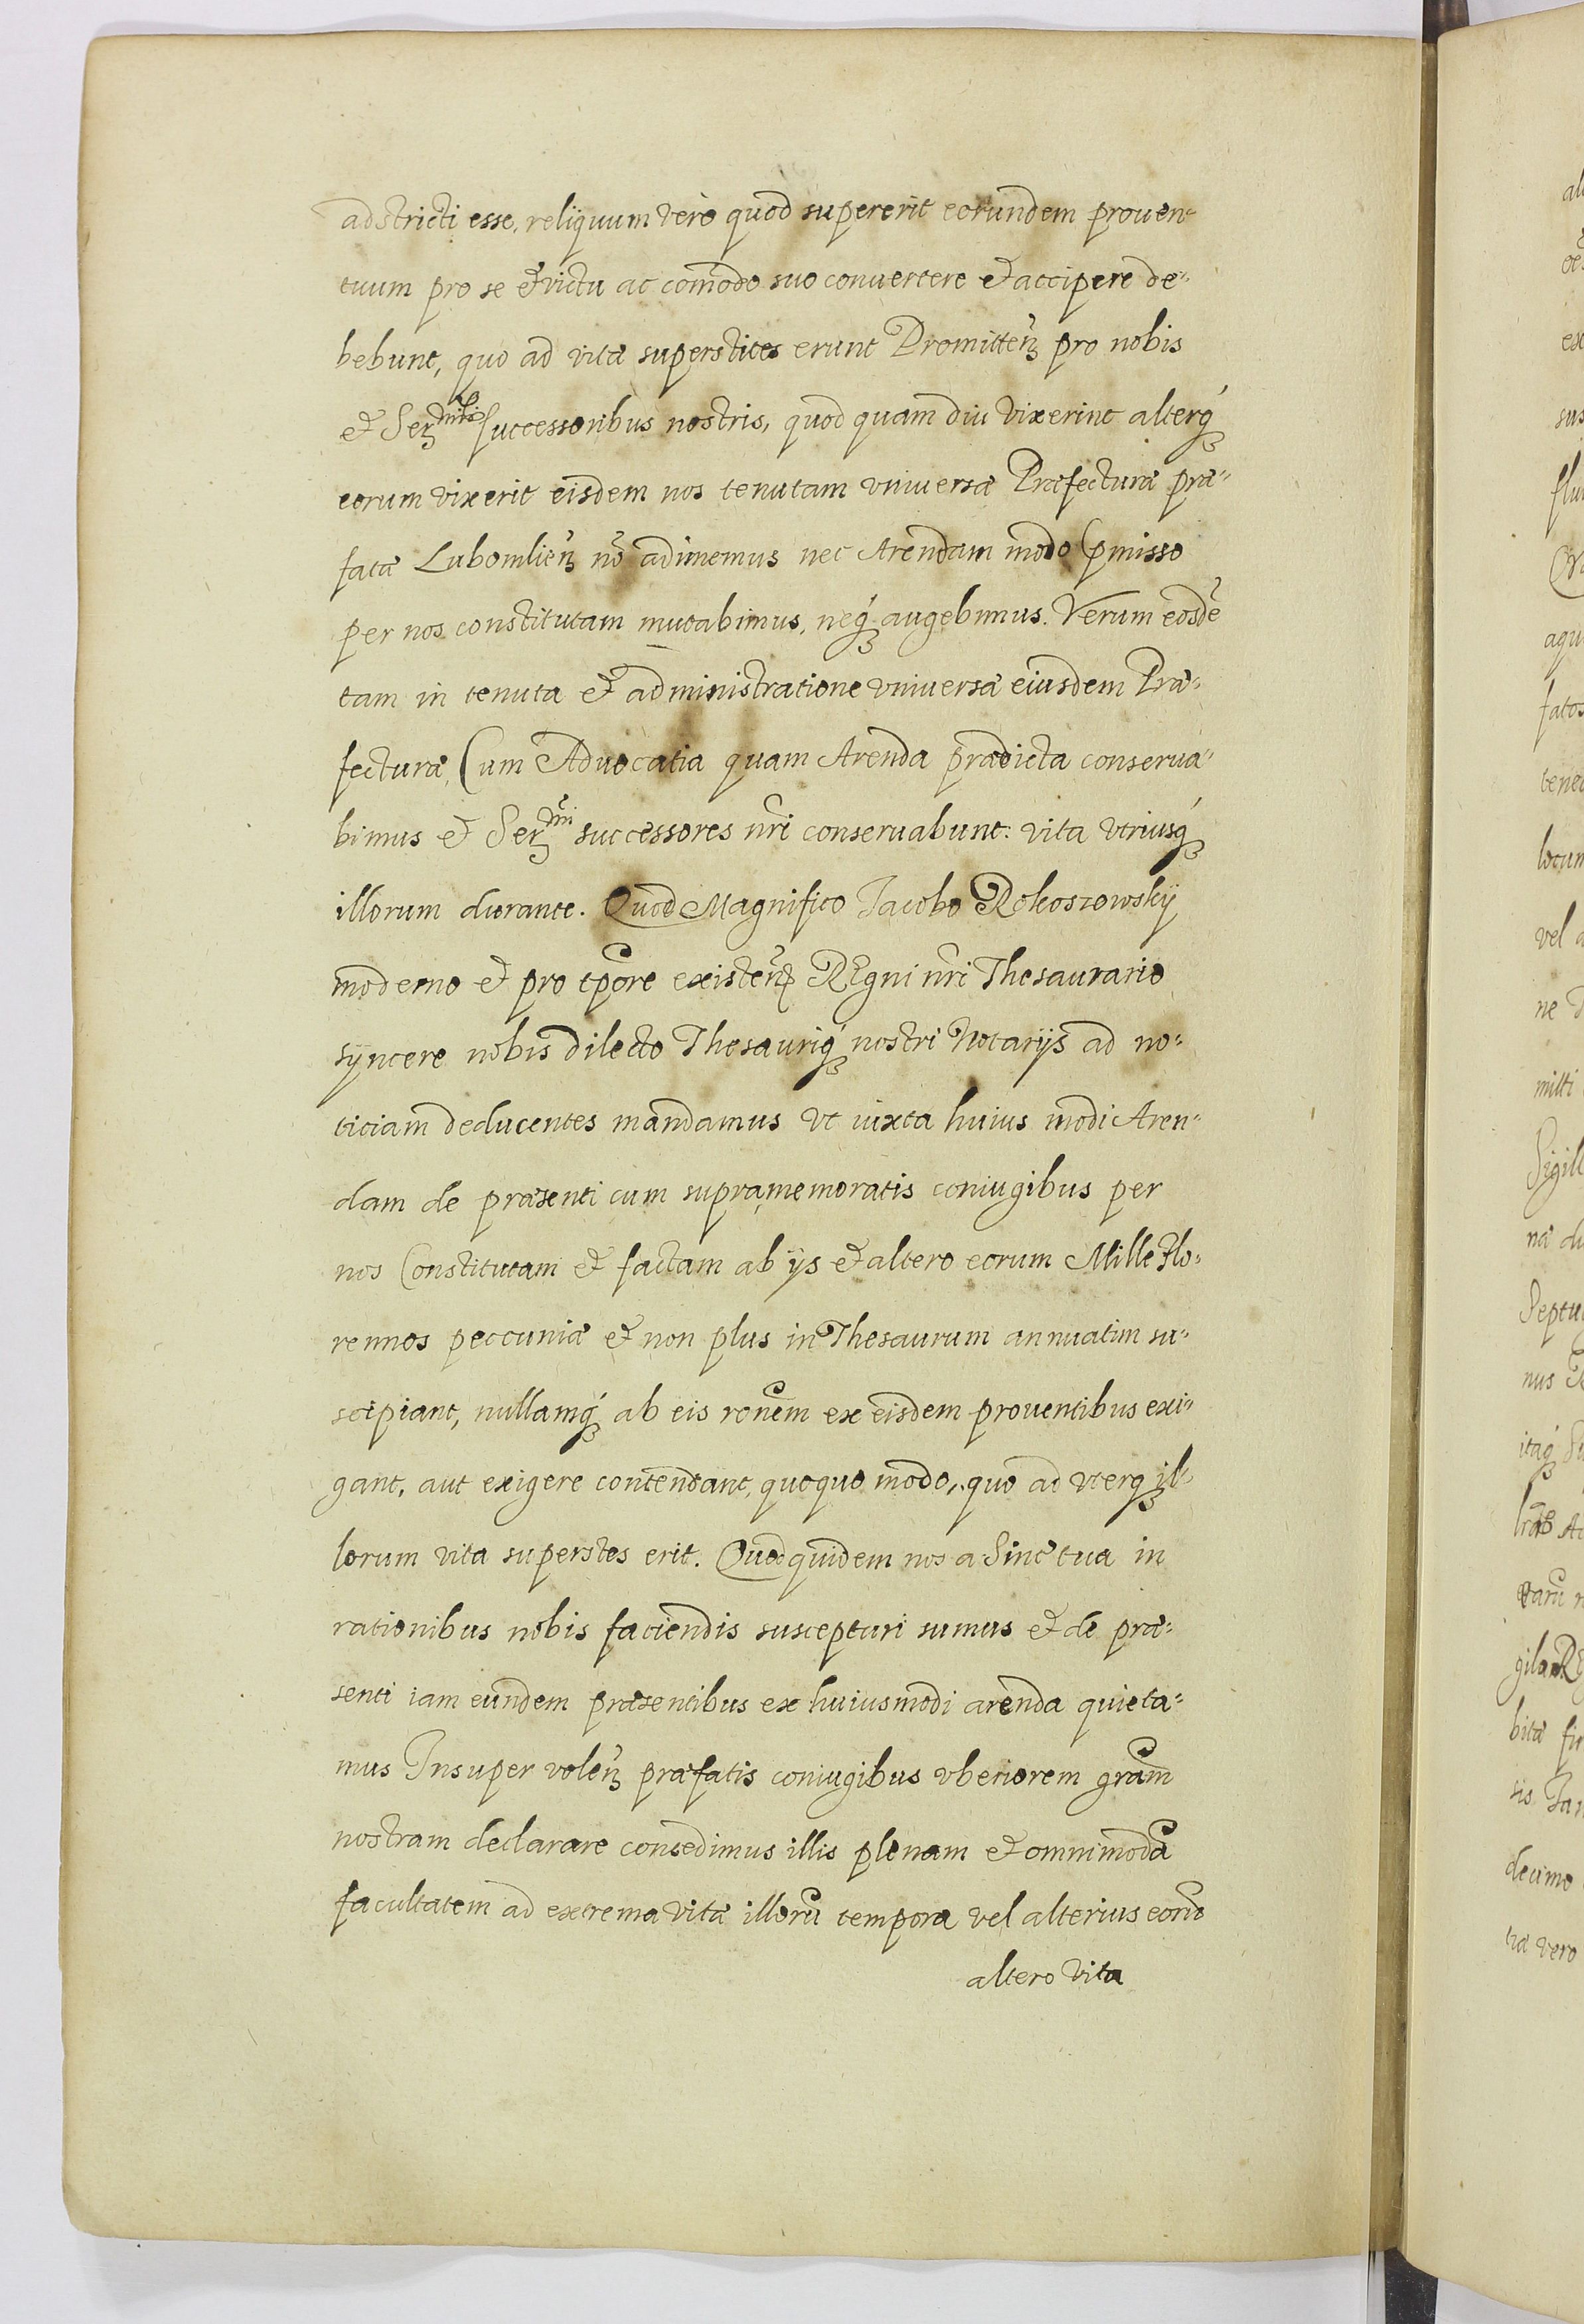 adstricti esse, reliquum vero quod supererit eorundem prouen-
tuum pro se et victu ac comodo suo conuertere et accipere de-
bebunt, quo ad vitæ superstites erunt Promitteñ pro nobis
et Ser<sup>mis</sup> successoribus nostris, quod quam diu vixerint alterq3
eorum vixerit eisdem nos tenutam vniuersæ Præfecturæ præ-
fatæ Lubomlieñ nō adimemus nec Arendam modo pmisso
per nos constitutam mutabimus, neq3 augebimus. Verum eosdē
tam in tenuta et administratione vniuersæ eiusdem Præ-
fecturæ, Cum Aduocatia quam Arenda prædicta conserua-
bimus et Ser<sup>mi</sup> successores nri conseruabunt: vita vtriusq3
illorum durante. Quod Magnifico Jacobo Rokoszowskÿ
moderno et pro tpore existeñ REgni nri Thesaurario
sÿncere nobis dilecto Thesauriq3 nostri Notarÿs ad no-
titiam deducentes mandamus vt iuxta huius modi Aren-
dam de præsenti cum supramemoratis coniugibus per
nos Constitutam et factam ab ÿs et altero eorum Mille Flo-
rennos peccuniæ et non plus in Thesaurum annuatim su-
scipiant, nullamq3 ab eis ronem ex eisdem prouentibus exi-
gant, aut exigere contendant, quoquo modo, quo ad vterq3 il-
lorum vita superstes erit. Quod quidem nos a Sincē tua in
rationibus nobis faciendis suscepturi sumus et de præ-
senti iam eundem præsentibus ex huiusmodi arenda quieta-
mus Insuper voleñ præfatis coniugibus vberiorem gram
nostram declarare consedimus illis plenam et omnimodā
facultatem ad extrema vitæ illorū tempora vel alterius eorū
altero vita